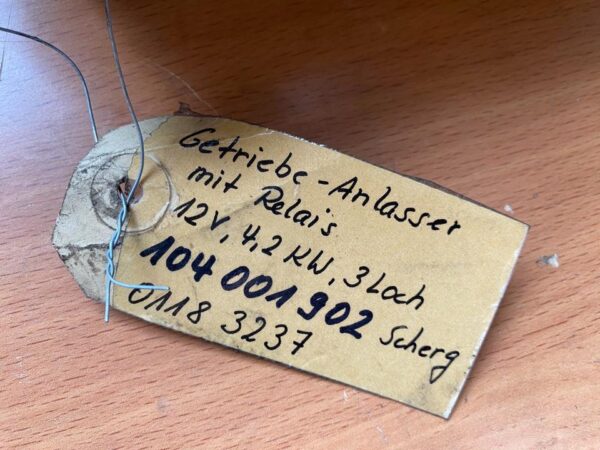 Getriebe-Anlasser
mit Relais
12V, 4,2 KW, 3Loch
104 001 902 Scherg
0118 3237